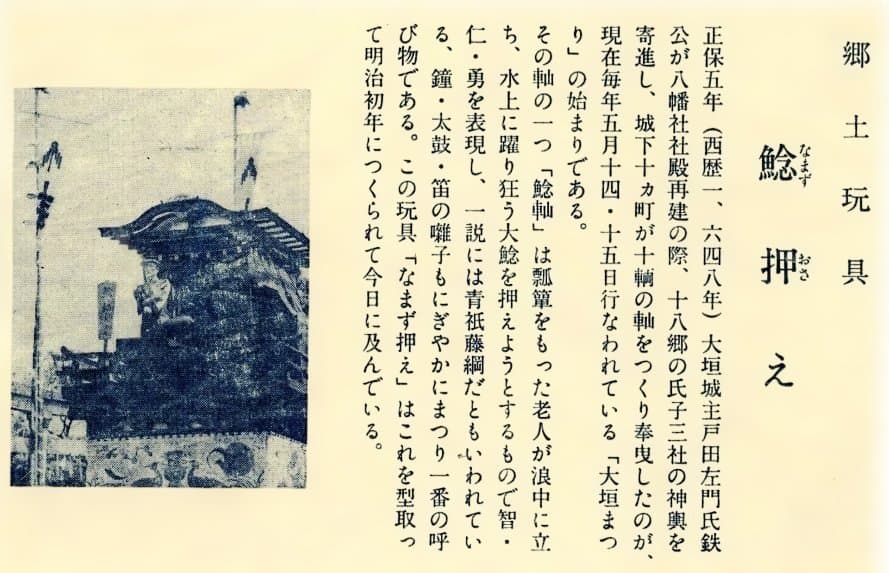 郷土玩具
鯰押え
なまず
おさ
正保五年（西歴一、六四八年）大垣城主戸田左門氏鉄
公が八幡社社殿再建の際、十八郷の氏子三社の神輿を
寄進し、城下十ヵ町が十輌の軕をつくり奉曳したのが、
現在毎年五月十四・十五日行なわれている「大垣まつ
り」の始まりである。
その軕の一つ「鯰軕」は瓢箪をもった老人が浪中に立
ち、水上に躍り狂う大鯰を押えようとするもので智・
仁・勇を表現し、一説には青祇藤綱だともいわれてい
る、鐘・太鼓・笛の囃子もにぎやかにまつり一番の呼
び物である。この玩具「なまず押え」はこれを型取っ
て明治初年につくられて今日に及んでいる。